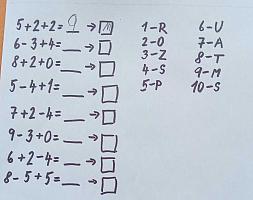 5+2+2=9 → M
6-3+4=__ →
8+2+0=__ →
5-4+1=__ →
7+2-4=__ →
9-3+0=__ →
6+2-4=__ →
8-5+5=__ →
1-R 6-U
2-O 7-A
3-Z 8-T
4-S 9-M
5-P 10-S